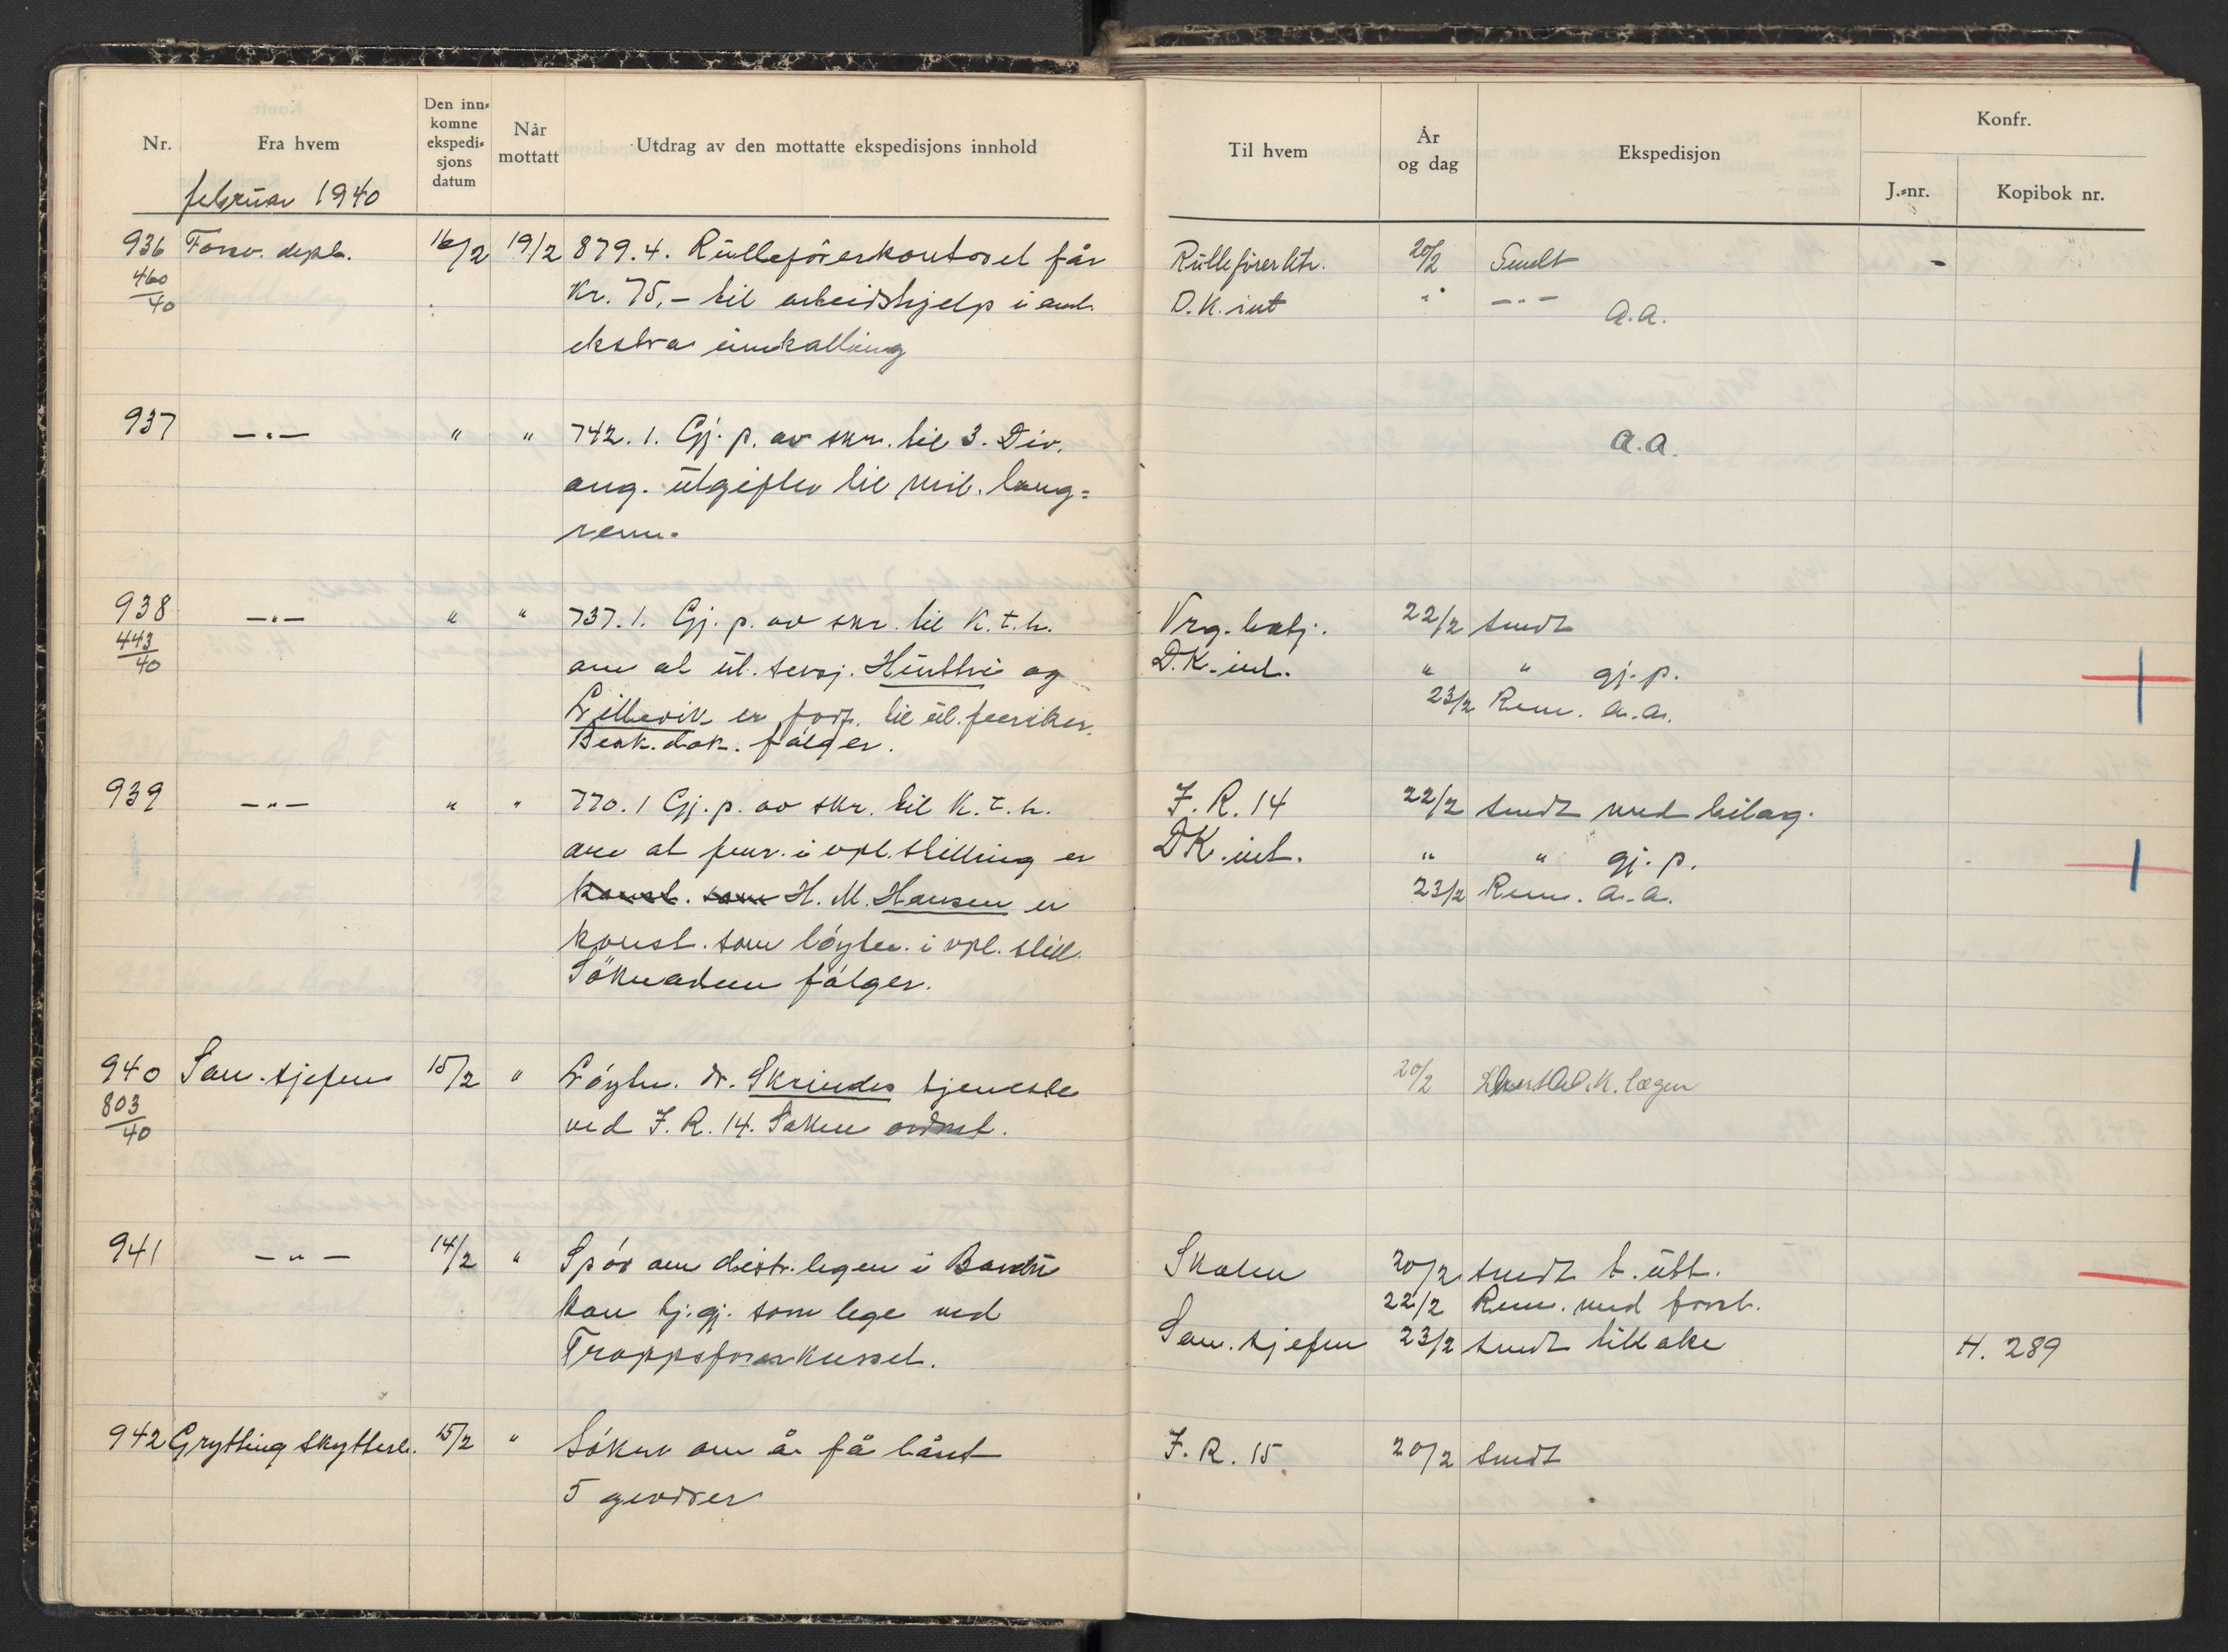 Nr.
Fra hvem
Den inn-
komne
ekspedi-
sjons
datum
Når
mottatt
Utdrag av den mottatte ekspedisjons innhold
februar 1940
936 Forsv. dept. 16/2 19/2 879.4. Rulleförerkontoret får
460/40 Kr. 75,- til arbeidshjelp i anl.
ekstra innkalling
937 —"— " " 742.1. Gj. p. av skr. til 3. Div.
ang. utgifter til mil. lang-
renn.
938 —"— " " 737.1. Gj. p. av skr. til K.t.h.
443/40 om at ut. sersj. Huttvi og
Lillevik er til ut.
Besk. dok. fölger.
939 —"— " " 770.1 Gj. p. av skr. til K.t.h.
om at fenr. i vpl. stilling er
konst. som H. M. Hansen er
konst. som löytn. i vpl. still.
Söknaden fölger.
940 San. sjefen 15/2 " Löytn. dr. Skrindes tjeneste
803/40 ved I.R. 14. Saken ordnet.
941 —"— 14/2 " Spör om distr. legen i Bardu
kan tj.gj. som lege ved
Troppsförerkurset.
942 Grytting skytterl. 15/2 " Söker om å få lånt
5 geværer
Til hvem
År
og dag
Ekspedisjon
Konfr.
J.-nr.
Kopibok nr.
Rulleförerktr. 20/2 Sendt -
D.K. int " —"—
a.a.
a.a.
Vrg. batj. 22/2 sendt
D.K. int. " " gj. p.
23/2 Rem. a.a.
I.R. 14 22/2 sendt med bilag.
DK. int. " " gj. p.
23/2 Rem. a.a.
20/2 D.K. lægen
Skolen 20/2 sendt t. utt.
22/2 Rem. med forst.
San. sjefen 23/2 sendt tilbake H. 289
I.R. 15 20/2 sendt